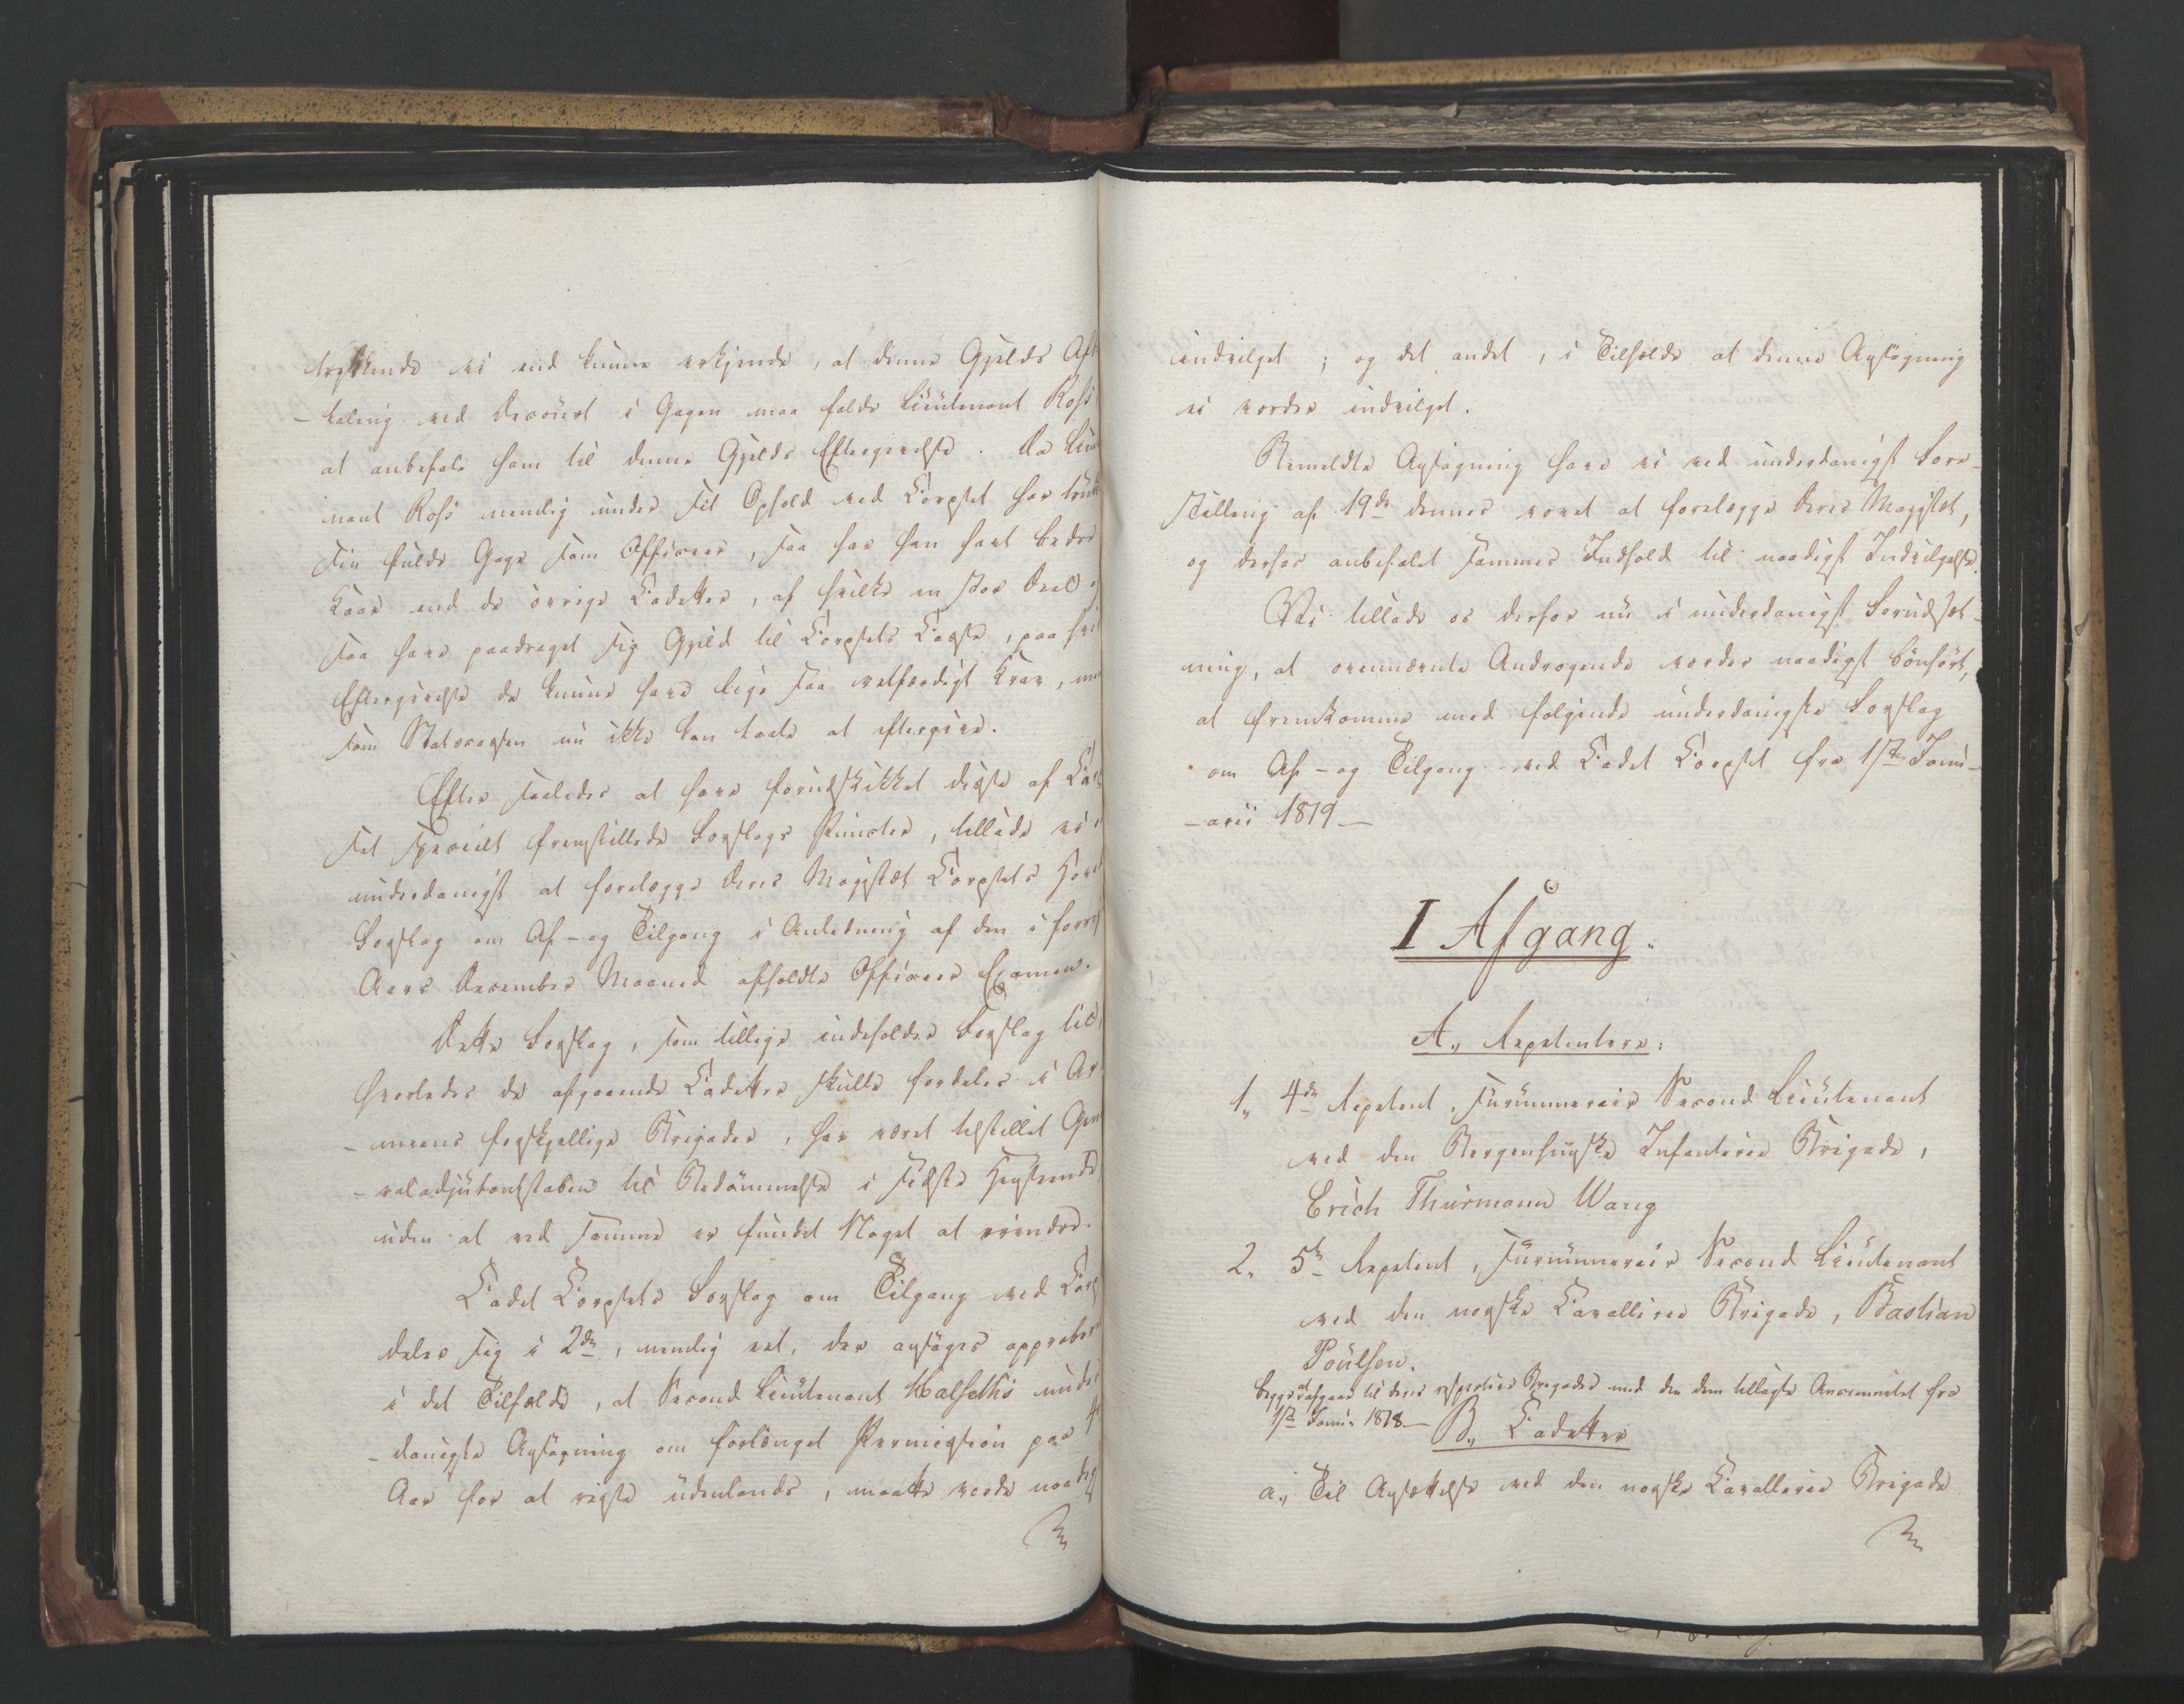 trykkende vi end kunne erkjende, at denne Gjelds Aft
-taling ved Decourt i Gagen maa falde Lieutenant Ross
at anbefale ham til denne Gjelds Eftergivelse. Da Lieu
nant Ross nemlig under sit Ophold ved Corpset har
sin fulde Gage som Officeer, saa har han havt bedre
Kaar end de övrige Cadetter, af hvilke en stor Deel
saa have paadraget sig Gjeld til Corpsets Casse, paa
Eftergivelse de kunne have lige saa retfærdigt Krav,
som Statscassen nu ikke kan taale at eftergive.
Efter saaledes at have forudskikket disse af
set specielt fremstillede Forslags Puncter, tillade vi
underdanigst at forelægge Deres Majestæt Corpsets
Forslag om Af- og Tilgang i Anledning af den i
Aars December Maaned afholdte Officeer Examen.
Dette Forslag, som tillige indeholder Forslag til
hvorledes de afgaaende Cadetter skulle fordeles i Ar
-meens forskjellige Brigader, har været tilstillet Gen
-raladjutantstaben til Bedömmelse i sidste Henseende
uden at ved samme er fundet Noget at erindre.
Cadet Corpsets Forslag om Tilgang ved Corp
deler sig i 2de, nemlig eet, der ansöges approberet
i det Tilfælde, at Second Lieutenant Halseths under
-danigste Ansögning om forlænget Permission paa
Aar for at reise udenlands, maatte vorde naadigst
indvilget; og det andet, i Tilfælde at denne Ansögning
ei vorder indvilget.
Bemeldte Ansögning have vi ved underdanigst Fore-
stilling af 19de dennes vovet at forelægge Deres Majestæt,
og derhos anbefalet sammes Indhold til naadigst Indvilgelse.
Vi tillade os derfor nu i underdanigst Forudsæt-
ning, at ovennævnte Andragende vorder naadigst bönhört,
at fremkomme med fölgende underdanigste Forslag
om Af- og Tilgang ved Cadet Corpset fra 1ste Janu-
-arii 1819
I Afgang.
A., Repetentere:
1, 4de Repetent, surnumerair Second Lieutenant
ved den Bergenhuuske Infanterie Brigade,
Erich Thurmann Wang
2, 5te Repetent, surnumerair Second Lieutenant
ved den norske Cavallerie Brigade, Bastian
Poulsen.
begge at afgaae til deres respective Brigader med den dem tillagte Anciennitet fra
1ste Janu. 1818.
B., Cadetter
a., Til Ansættelse ved den norske Cavallerie Brigade